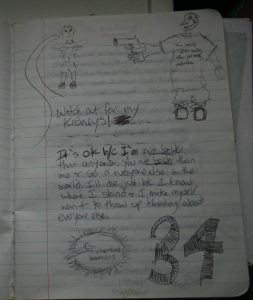 The world
Watch out for my
kidneys!
It's ok b/c I'm not better
than anyone. You're better than
me & so is everyone else in the
world. I'll die just b/c I know
where I stand & I make myself
want to throw up thinking about
everyone else.
34